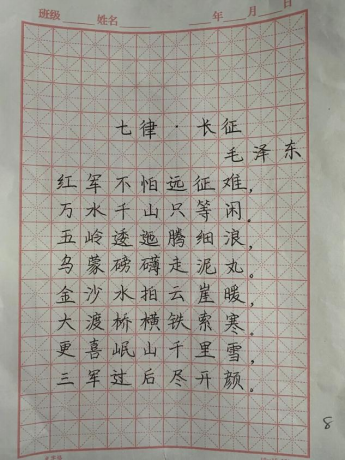 班级 姓名 年 月 日
七律·长征
毛泽东
红军不怕远征难，
万水千山只等闲。
五岭逶迤腾细浪，
乌蒙磅礴走泥丸。
金沙水拍云崖暖，
大渡桥横铁索寒。
更喜岷山千里雪，
三军过后尽开颜。
8